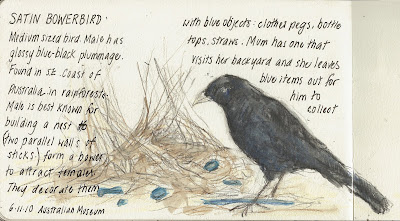 SATIN BOWERBIRD.
Medium sized bird. Male has
glossy blue-black plummage.
Found in SE. Coast of
Australia in rainforests.
Male is best known for
building a nest to
(two parallel walls of
sticks) form a bower
to attract females.
They decorate them
6-11-10 Australian Museum
with blue objects: clothes pegs, bottle
tops, straws. Mum has one that
visits her backyard and she leaves
blue items out for
him to
collect